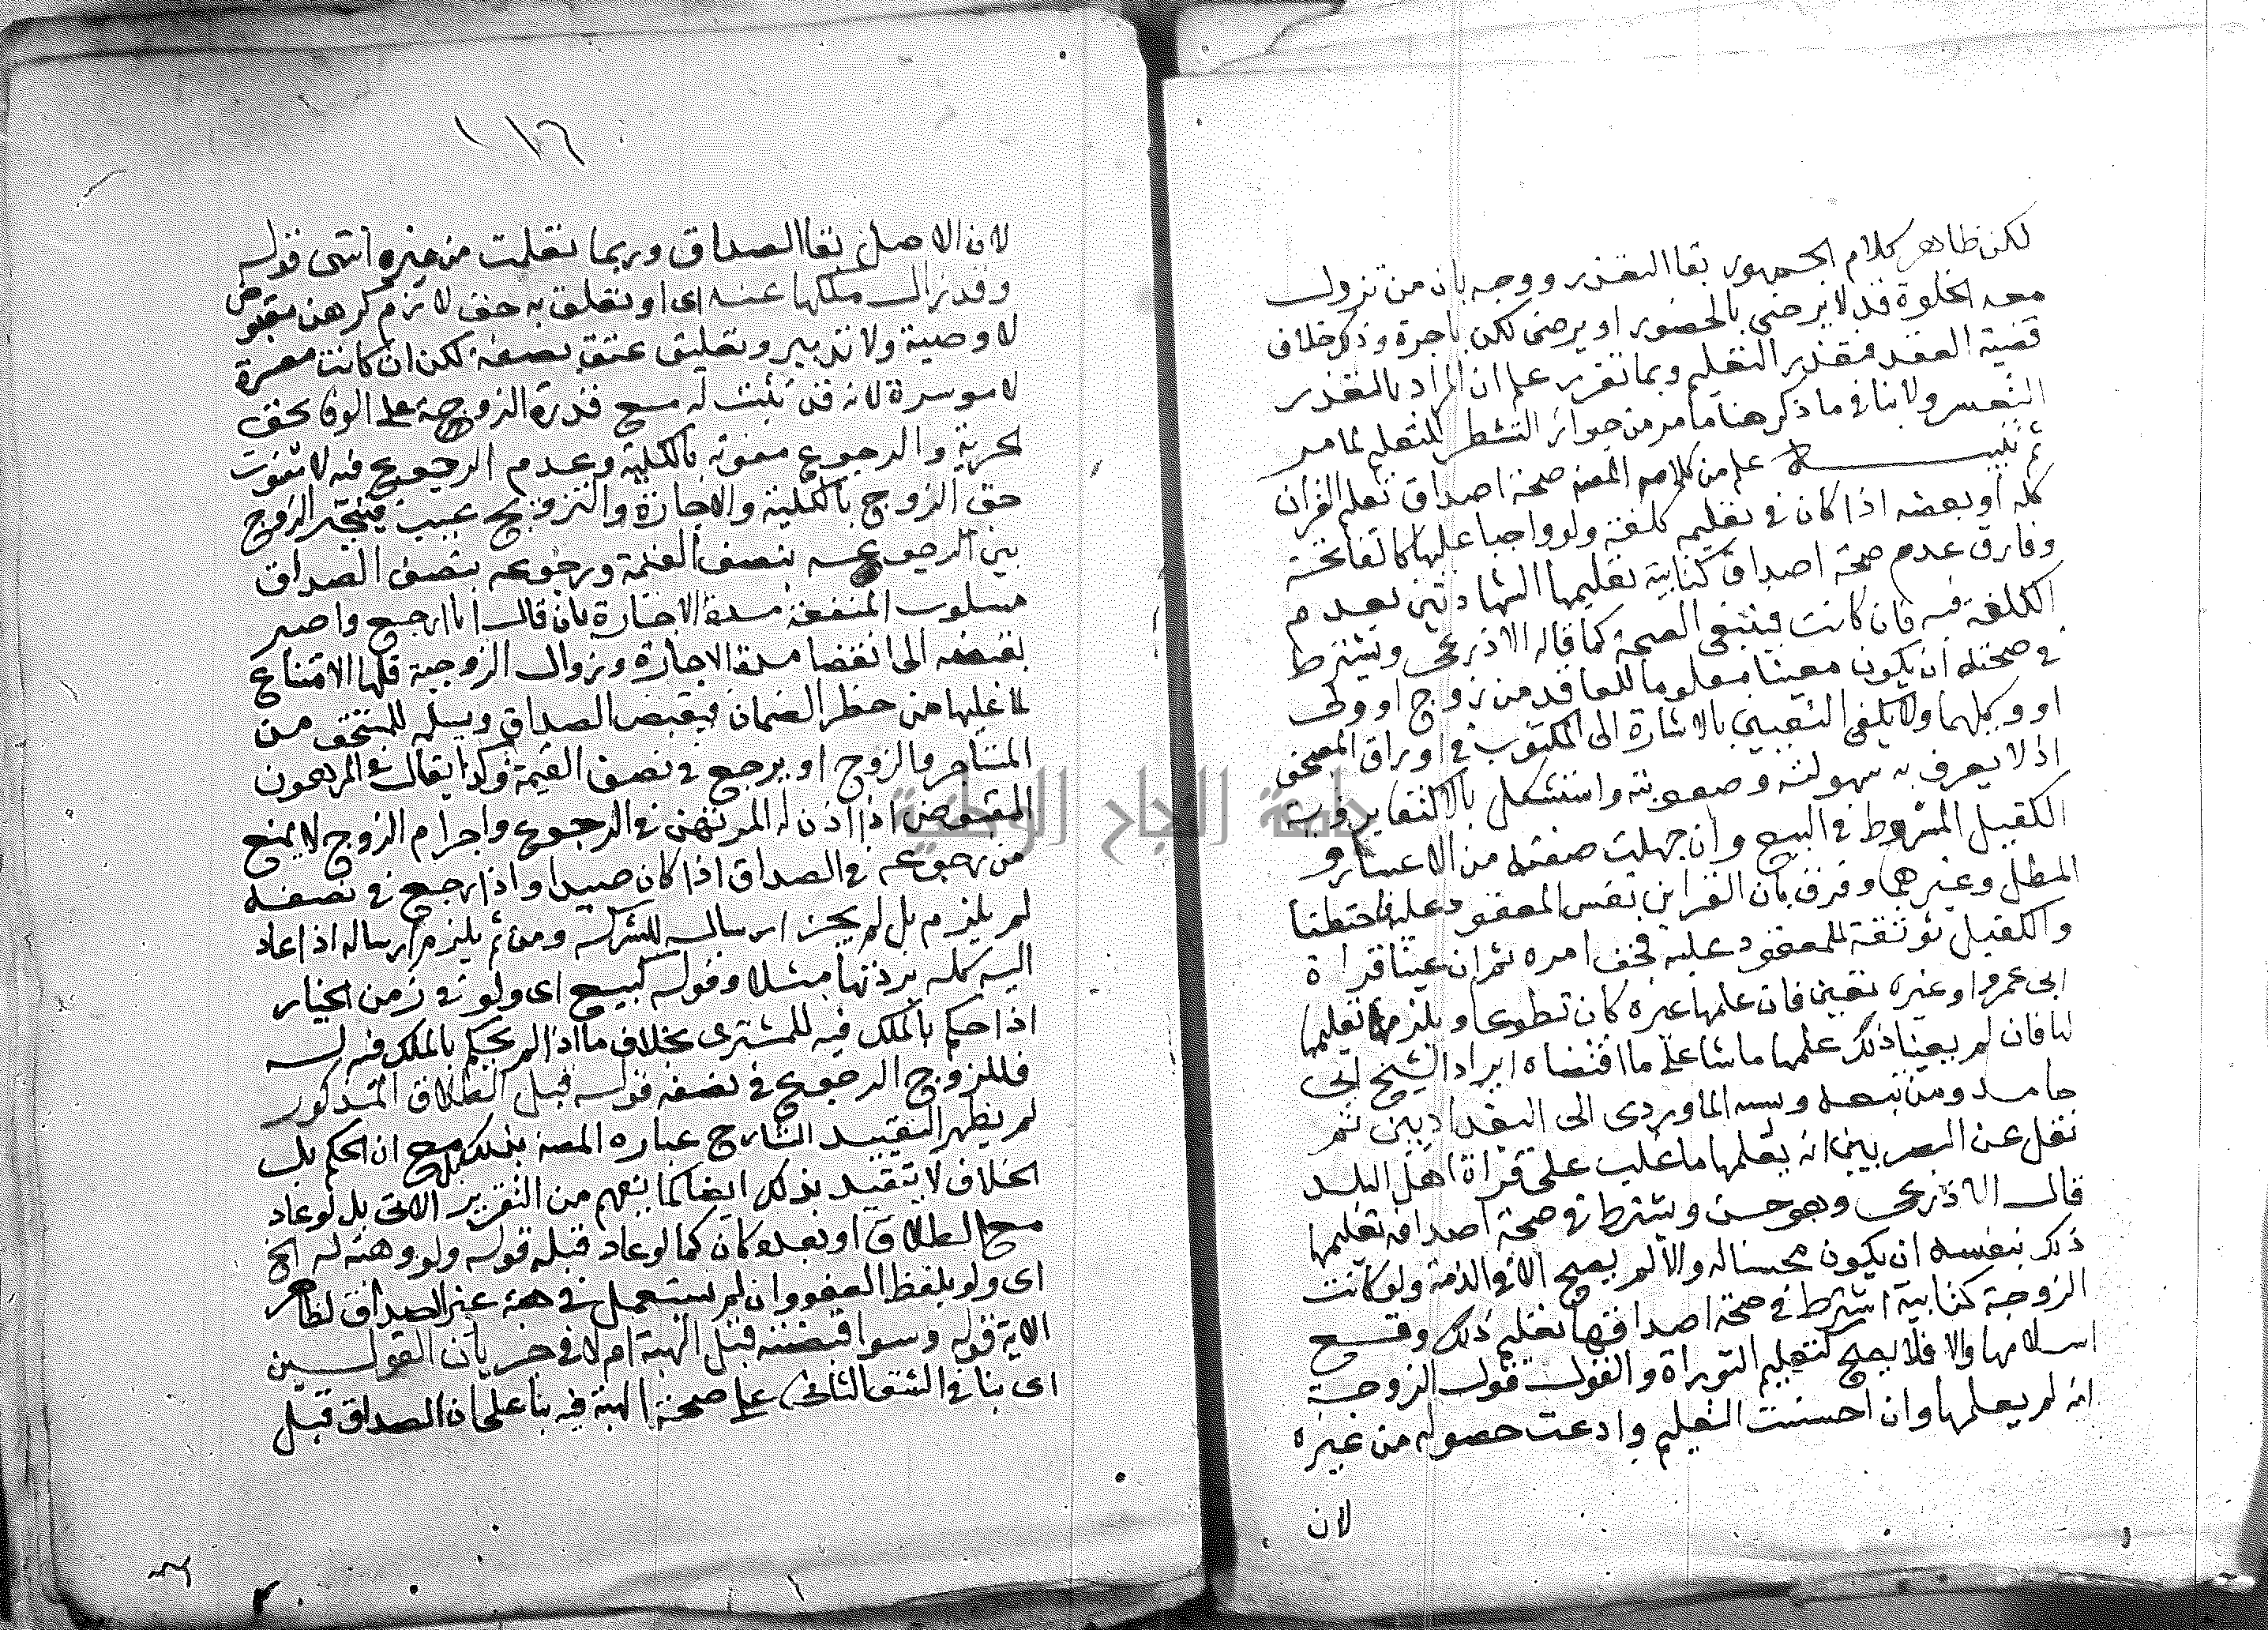 لكن ظاهر كلام الجمهور بقا التعذر ووجه بان من تزول
معه الخلوة قد لا يرضى بالحضور او يرضى لكن باجرة وذكر خلاف
قضية العقد فتعذر التعليم وبما تقرر علم ان المراد بالتعذر
التعسر ولا ينافى ما ذكر هنا ما مر من جواز النظر للتعليم لما مر
ثم تنبيه علم من كلامه المصنه صحة اصداق تعلم القران
كله او بعضه اذا كان فى تعليمه كلفة ولو واجبا عليها كالفاتحة
وفارق عدم صحة اصداق كتابية تعليمها الشهادتين بعدم
الكلفة فيه فان كانت فينبغى الصحة كما قاله الاذرعى ويشترط
فى صحته ان يكون معينا معلوما للعاقد من زوج او ولى
او وكيلهما ولا يكفى التعيين بالاشارة الى المكتوب فى اوراق المصحف
اذ لا يعرف به سهولته وصعوبته واستشكل بالاكتفا برؤية
الكفيل المشروط فى البيع وان جهلت صفته من الاعسار و
المطل وغيرهما وفرق بان القران نفس المعقود عليه فاحتطنا
والكفيل توثقة للمعقود عليه فخف امره ثم ان عينا قراة
ابى عمرو او غيره تعين فان علمها غيره كان تطوعا ويلزمه تعليمها
لها فان لم يعينا ذلك علمها ما شا على ما اقتضاه ايراد الشيخ ابى
حامد ومن تبعه ونسبه الماوردى الى البغداديين ثم
نقل عن البصريين انه يعلمها ما غلب على قراة اهل البلد
قال الاذرعى وهو حسن ويشترط فى صحة اصداقه تعليمها
ذلك بنفسه ان يكون محسنا له والا لم يصح الا فى الذمة ولو كانت
الزوجة كتابية اشترط فى صحة اصداقها تعليم ذلك وقع
اسلامها والا فلا يصح كتعليم التوراة والقول قول الزوجة
انه لم يعلمها وان احسنت التعليم وادعت حصوله من غيره
لان
١١٦
لان الاصل بقا الصداق وربما نقلت من غيره انتهى قوله
وقد زال ملكها عنه اى او تعلق به حق لازم كرهن مقبوض
لا وصية ولا تدبير وتعليق عتق بصفة لكن ان كانت معسرة
لا موسرة لانه قد ثبت له مع قدرة الزوجة على الوفا بحق
الحرية والرجوع مفوته بالكلية وعدم الرجوع فيه لا يفوت
حق الزوج بالكلية والاجارة والتزويج عيب فيتخير الزوج
بين الرجوع بنصف القيمة ورجوعه بنصف الصداق
مسلوب المنفعة مدة الاجارة بان قال انا ارجع واصبر
بقبضه الى انقضا مدة الاجارة وزوال الزوجية فلها الامتناع
لما عليها من خطر الضمان فيقبض الصداق ويسلمه للمستحق من
المستاجر والزوج او يرجع فى نصف القيمة وكذا يقال فى المرهون
المقبوض اذا اذن له المرتهن فى الرجوع واحرام الزوج لا يمنع
من رجوعه فى الصداق اذا كان صيدا واذا رجع فى نصفه
لم يلزم بل لم يجز ارساله للشركه ومن ثم يلزم ارساله اذا عاد
اليه كله بردتها مثلا وقوله كبيع اى ولو فى زمن الخيار
اذا حكم بالملك فيه للمشترى بخلاف ما اذا لم يحكم بالملك فيه له
فللزوج الرجوع فى نصفه قوله قبل الطلاق المذكور
لم يظهر لتقييد الشارح عباره المصنه بذلك مع ان الحكم بل
الخلاف لا يتقيد بذلك ايضا كما يفهم من التقرير الاتى بل لو عاد
مع الطلاق او بعده كان كما لو عاد قبله قوله ولو وهبته له الخ
اى ولو بلفظ العفو وان لم يستعمل فى هبة غير الصداق لظاهر
الاية قوله وسوا قبضته قبل الهبة ام لا فى جريان القولين
اى بنا فى الشق الثانى على صحة الهبة فيه بنا على ان الصداق قبل
جامعة النجاح الوطنية